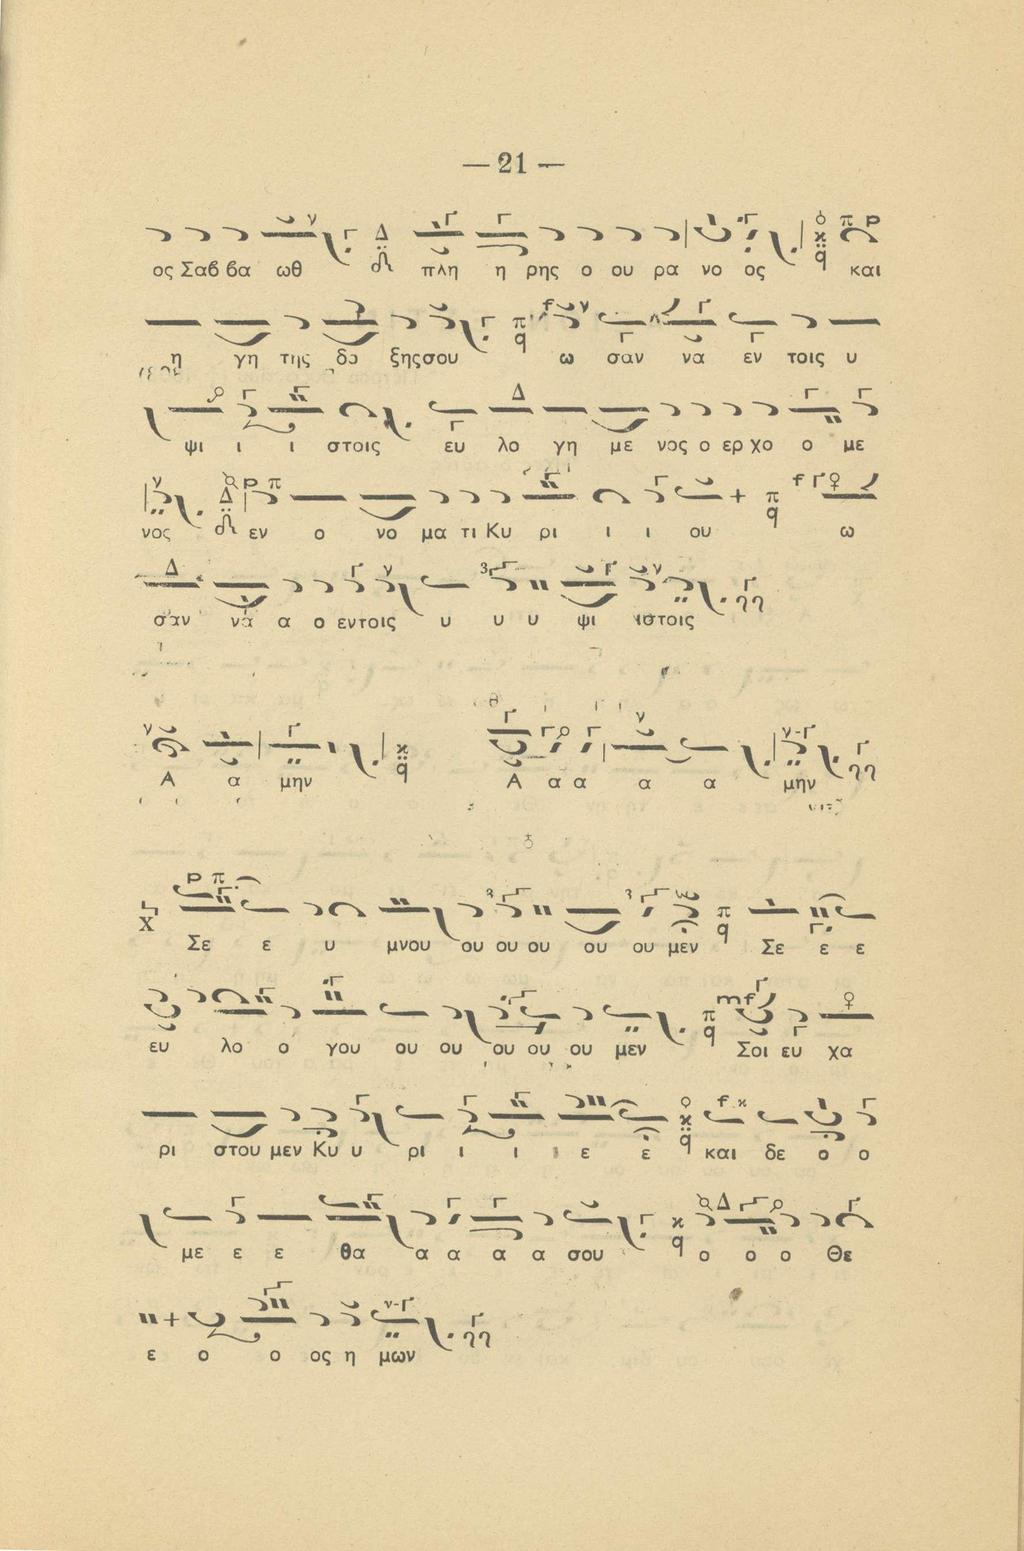 — 21 —
ος Σαβ βα ωθ πλη η ρης ο ου ρα νο ος και
η γη της δο ξης σου ω σαν να εν τοις υ
ψι ι ι στοις ευ λο γη με νος ο ερ χο ο με
νος εν ο νο μα τι Κυ ρι ι ι ου ω
σαν να α ο εν τοις υ υ υ ψι ιστοις
Α α μην Α α α α α μην
Σε ε υ μνου ου ου ου ου ου μεν Σε ε ε
ευ λο ο γου ου ου ου ου ου μεν Σοι ευ χα
ρι στου μεν Κυ υ ρι ι ι ε ε και δε ο ο
με ε ε θα α α α α σου ο ο ο Θε
ε ο ο ος η μων